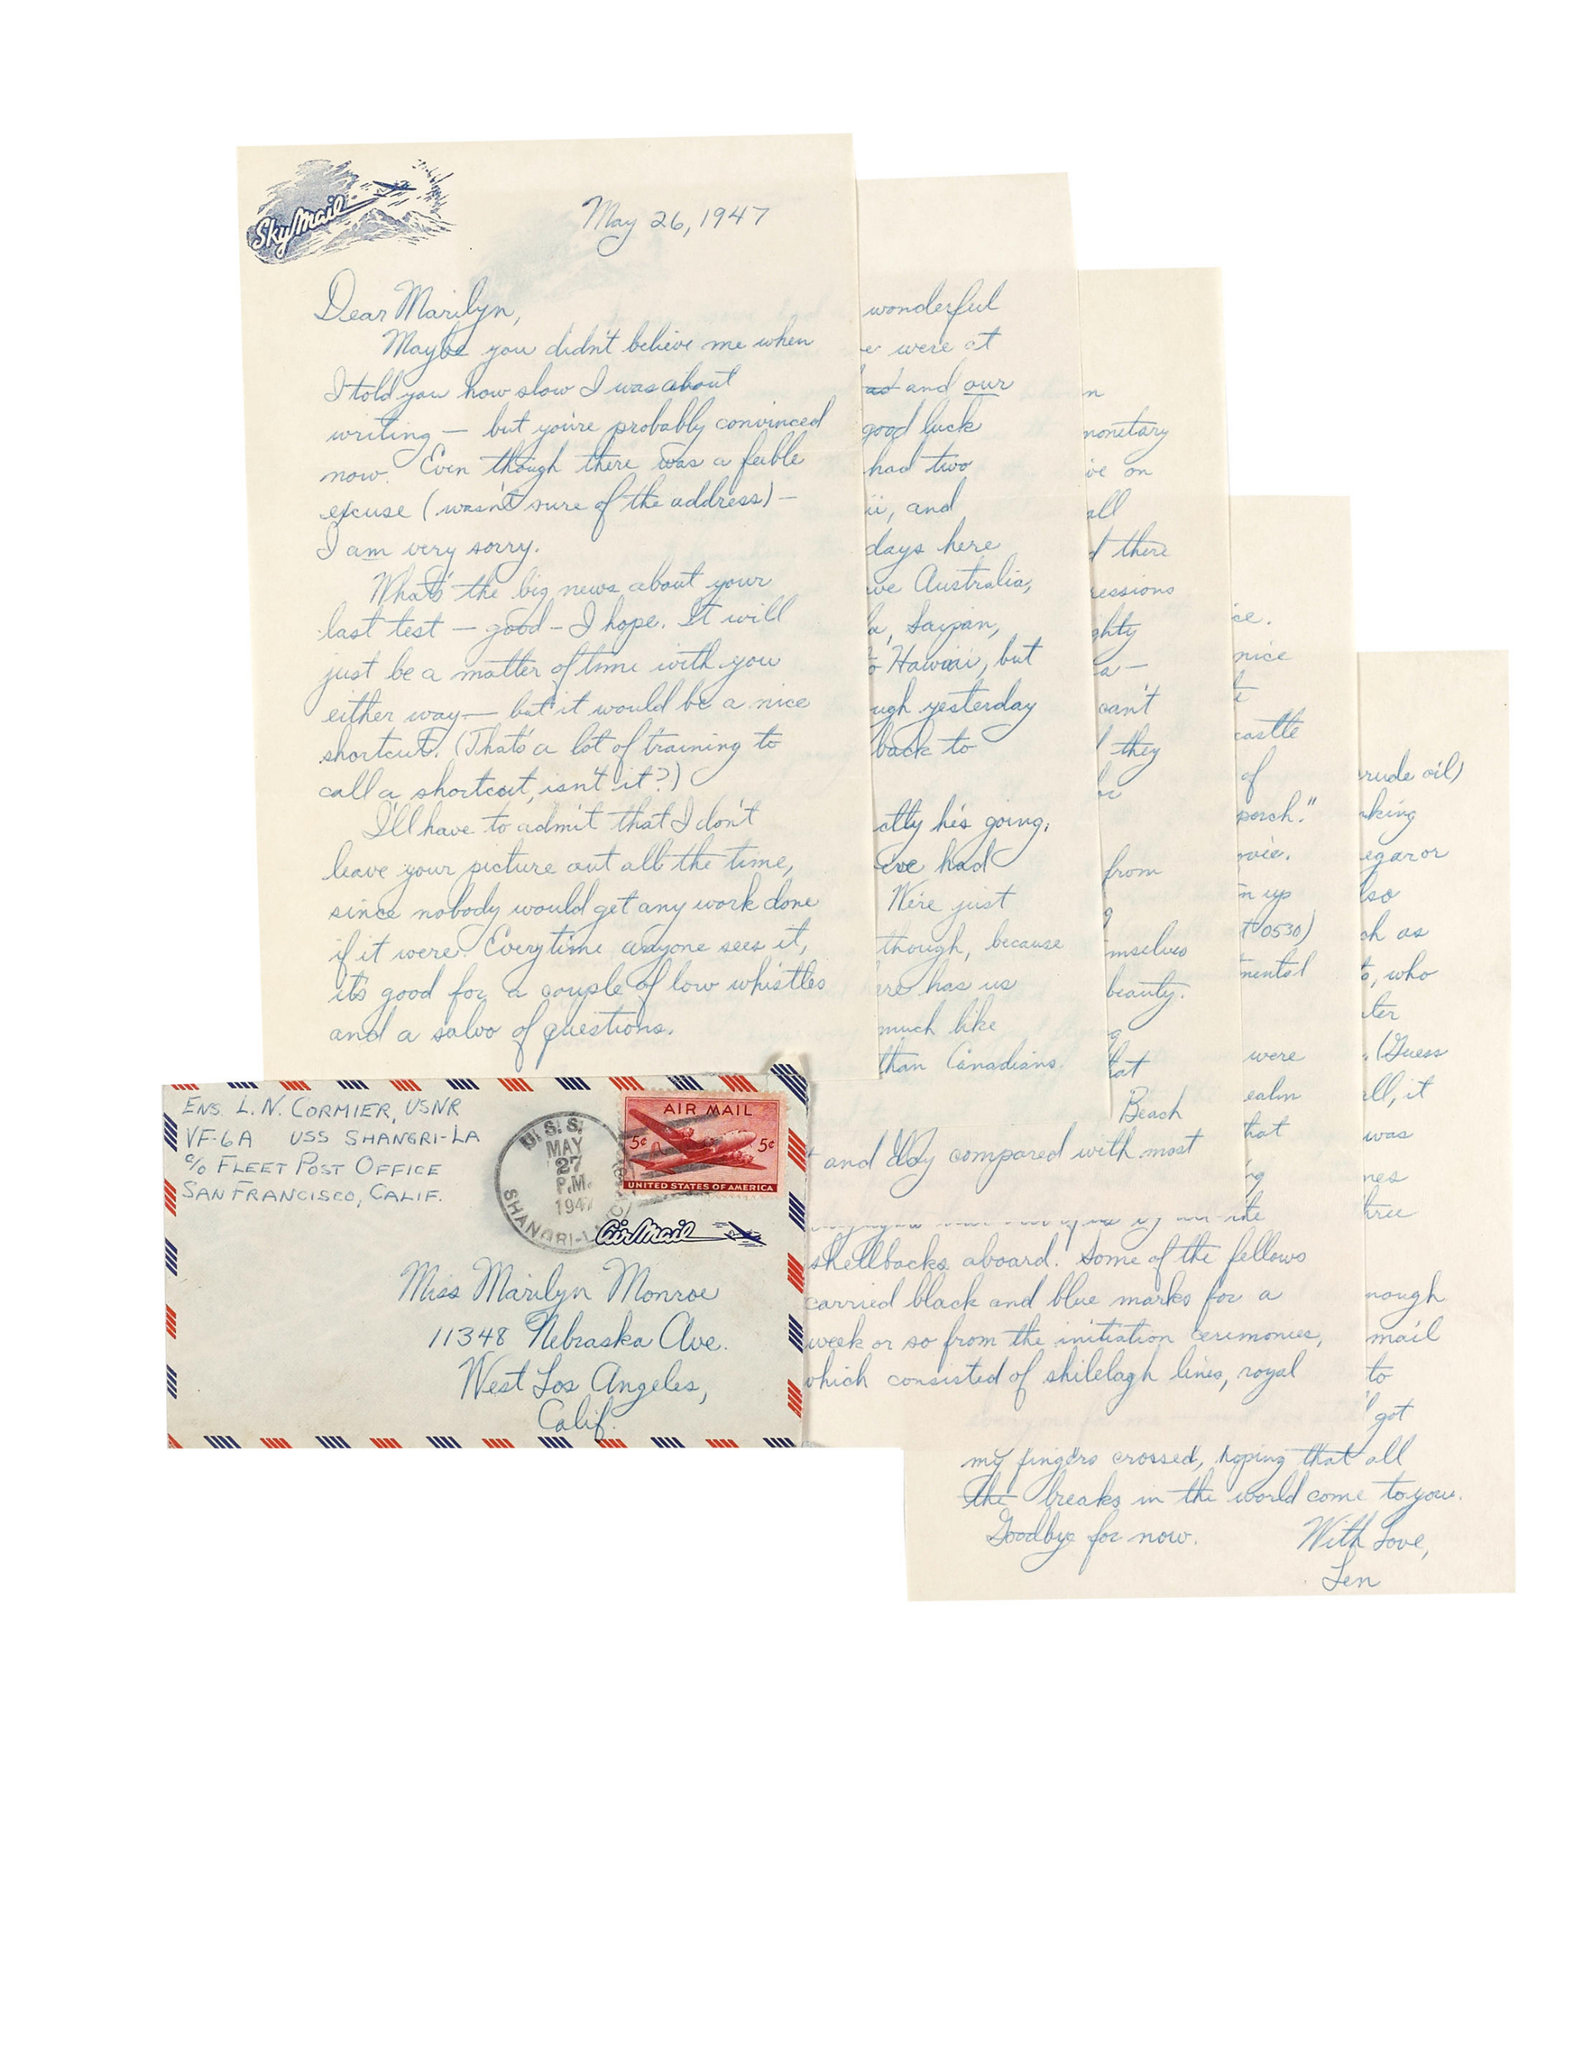 Sky Mail
May 26, 1947
Dear Marilyn,
Maybe you didn't believe me when
I told you how slow I was about
writing — but you're probably convinced
now. Even though there was a feeble
excuse (wasn't sure of the address) —
I am very sorry.
What's the big news about your
last test — good — I hope. It will
just be a matter of time with you
either way — but it would be a nice
shortcut. (That's a lot of training to
call a shortcut, isn't it?)
I'll have to admit that I don't
leave your picture out all the time,
since nobody would get any work done
if it were. Everytime anyone sees it,
it's good for a couple of low whistles
and a salvo of questions.
wonderful
were at
and our
good luck
had two
and
days here
Australia,
Saipan,
Hawaii, but
yesterday
back to
he's going,
had
We're just
though, because
has us
much like
than Canadians.
n
monetary
on
all
there
ressions
ghty
a —
can't
they
from
mselves
beauty.
hat
Beach
and day compared with most
ce.
nice
castle
of
porch."
ovie.
n up
0530)
mental
were
ealm
that
ng
the
shellbacks aboard. Some of the fellows
carried black and blue marks for a
week or so from the initiation ceremonies,
which consisted of shilelagh lines, royal
crude oil)
king
egar or
lso
ch as
who
ter
(Guess
all, it
was
mes
three
nough
mail
to
got
my fingers crossed, hoping that all
the breaks in the world come to you.
Goodbye for now.
With Love,
Len
ENS. L. N. CORMIER, USNR
VF-6A USS SHANGRI-LA
c/o FLEET POST OFFICE
SAN FRANCISCO, CALIF.
U.S.S.
MAY
27
P.M.
1947
SHANGRI-LA
AIR MAIL
5¢ 5¢
UNITED STATES OF AMERICA
Air Mail
Miss Marilyn Monroe
11348 Nebraska Ave.
West Los Angeles,
Calif.